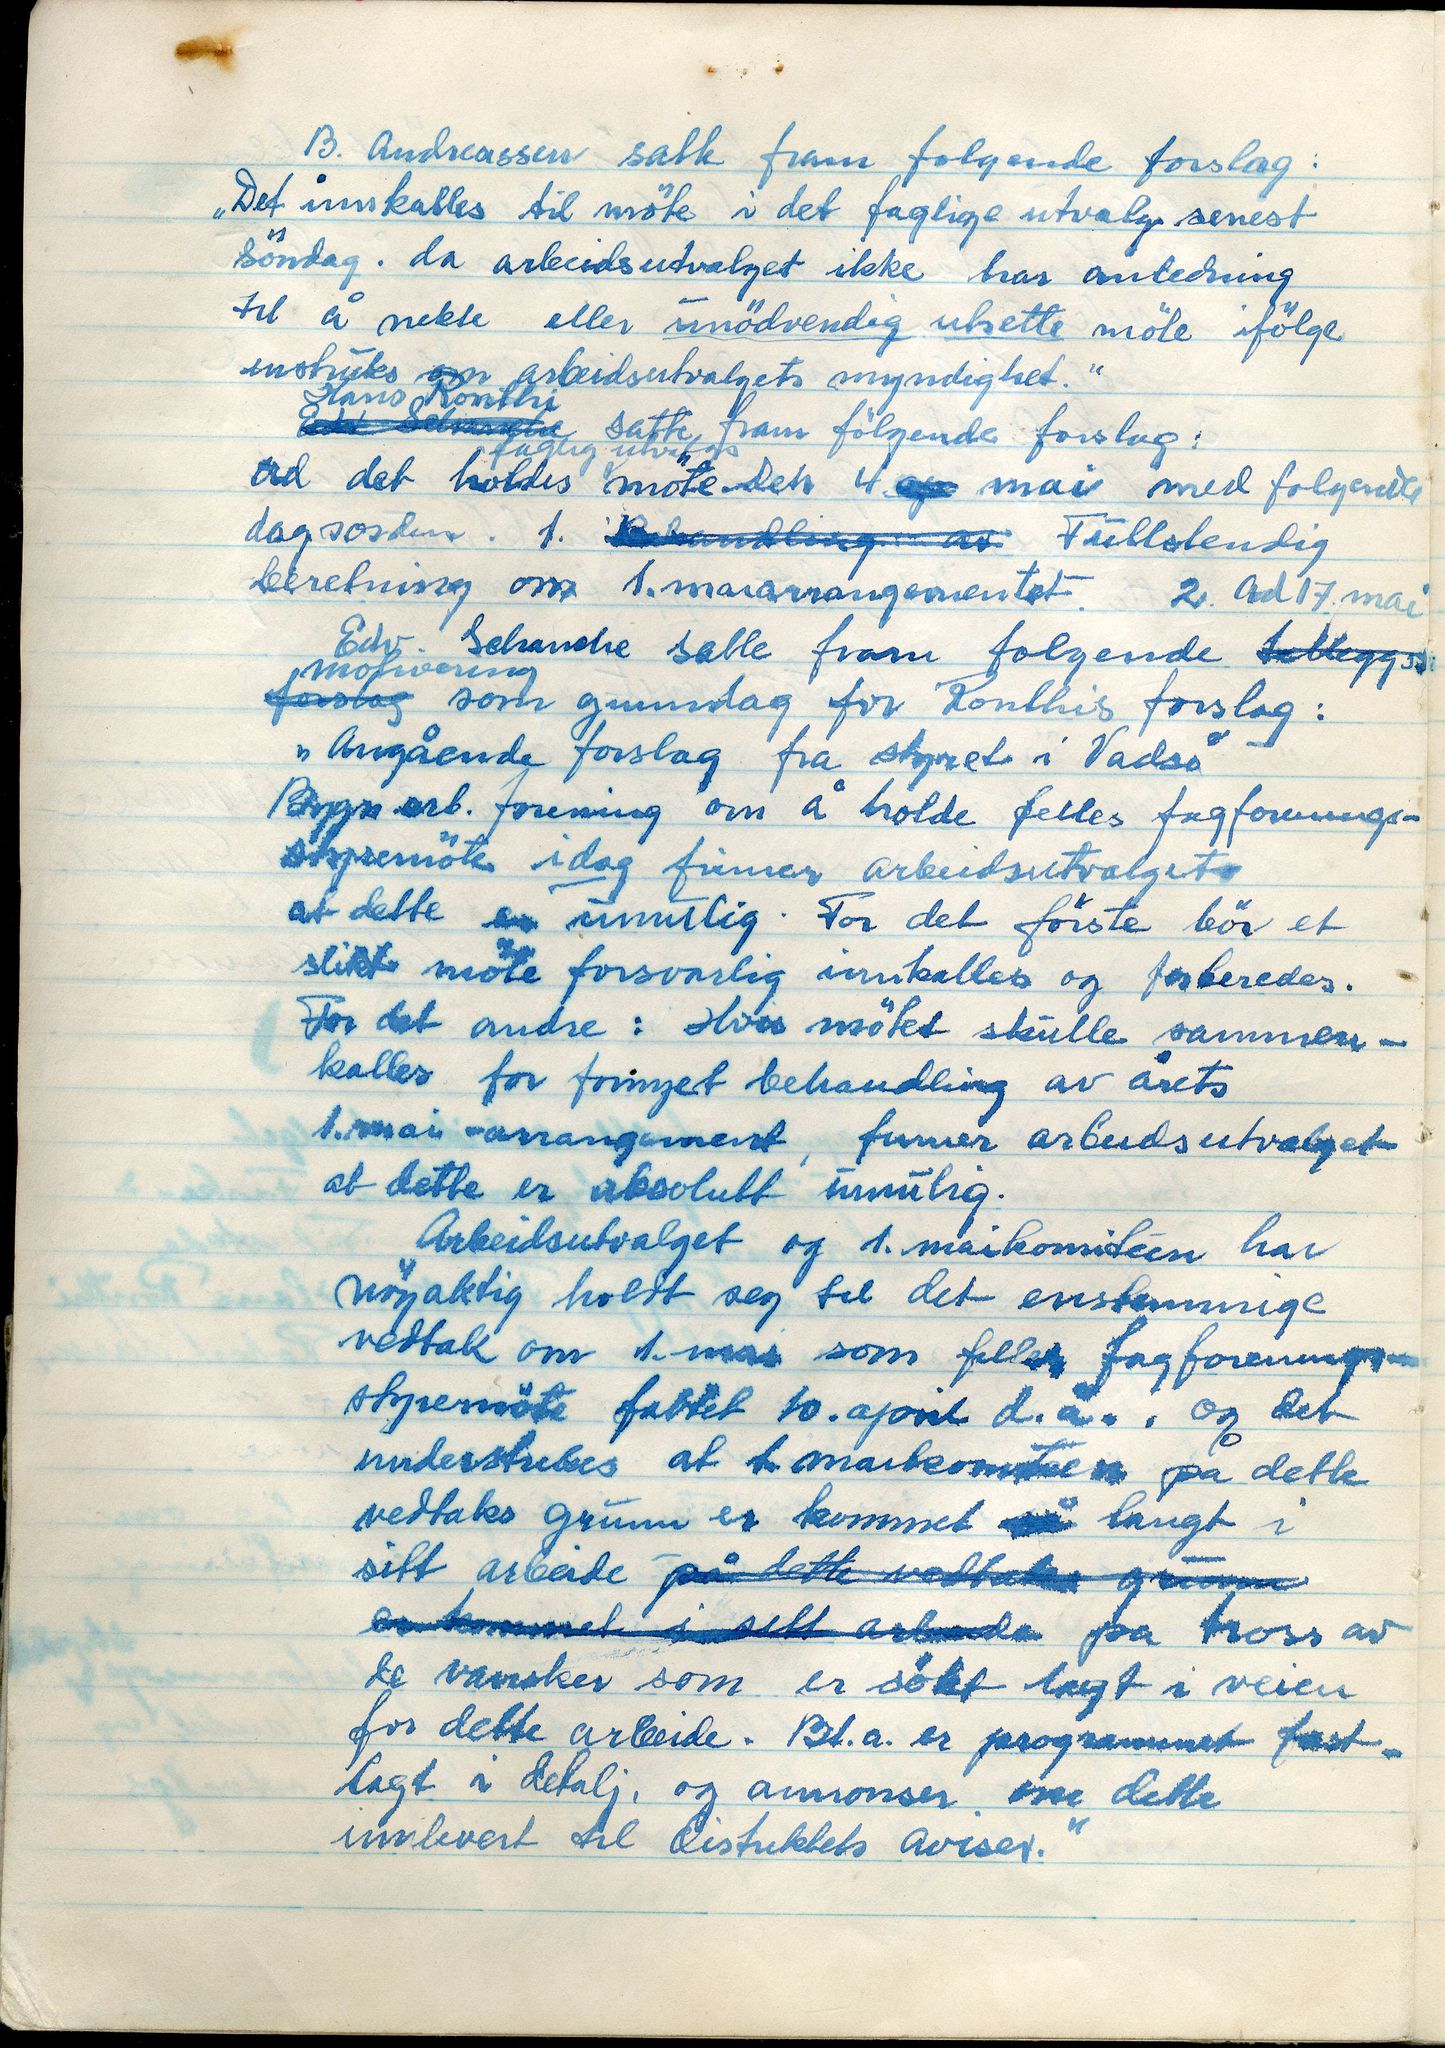 B. Andreassen satte fram følgende forslag:
„Det innkalles til möte i det faglige utvalg senest
söndag. da arbeidsutvalget ikke har anledning
til å nekte eller unödvendig utsette möte ifölge
instruks om arbeidsutvalgets myndighet."
Hans Ronthi
Edv Schanche satte fram fölgende forslag:
faglig utvalgs
ad det holdes möte den 4. ap mai med følgende
dagsorden. 1. Behandling av Fullstendig
beretning om 1. maiarrangementet. 2. Ad 17. mai
Edv. Schanche satte fram følgende tilleggs
motivering
forslag som grunnlag for Ronthis forslag:
„Angående forslag fra styret i Vadsö
Bygn arb. forening om å holde felles fagforenings-
styremöte idag finner arbeidsutvalget
at dette er umulig. For det förste bör et
slikt möte forsvarlig innkalles og forberedes.
For det andre: Hvis mötet skulle sammen-
kalles for fornyet behandling av årets
1. mai-arrangement, finner arbeidsutvalget
at dette er absolutt umulig.
Arbeidsutvalget og 1. maikomiteen har
nöyaktig holdt seg til det enstemmige
vedtak om 1. mai som felles fagforenings-
styremöte fattet 10. april d.å. . og det
understrekes at 1. maikomiteen på dette
vedtaks grunn er kommet så langt i
sitt arbeide på dette vedtaks grunn
er kommet i sitt arbeide på tross av
de vansker som er sökt lagt i veien
for dette arbeide. Bl.a. er programmet fast-
lagt i detalj, og annonser om dette
innlevert til distriktets aviser."